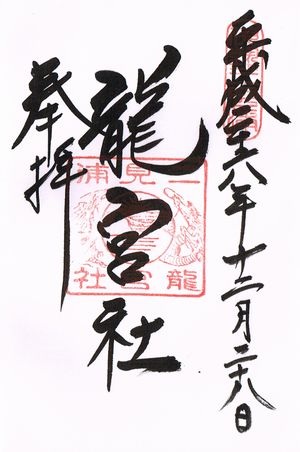 平成二十六年十二月二十八日
龍宮社
奉拝
二見浦
龍宮社